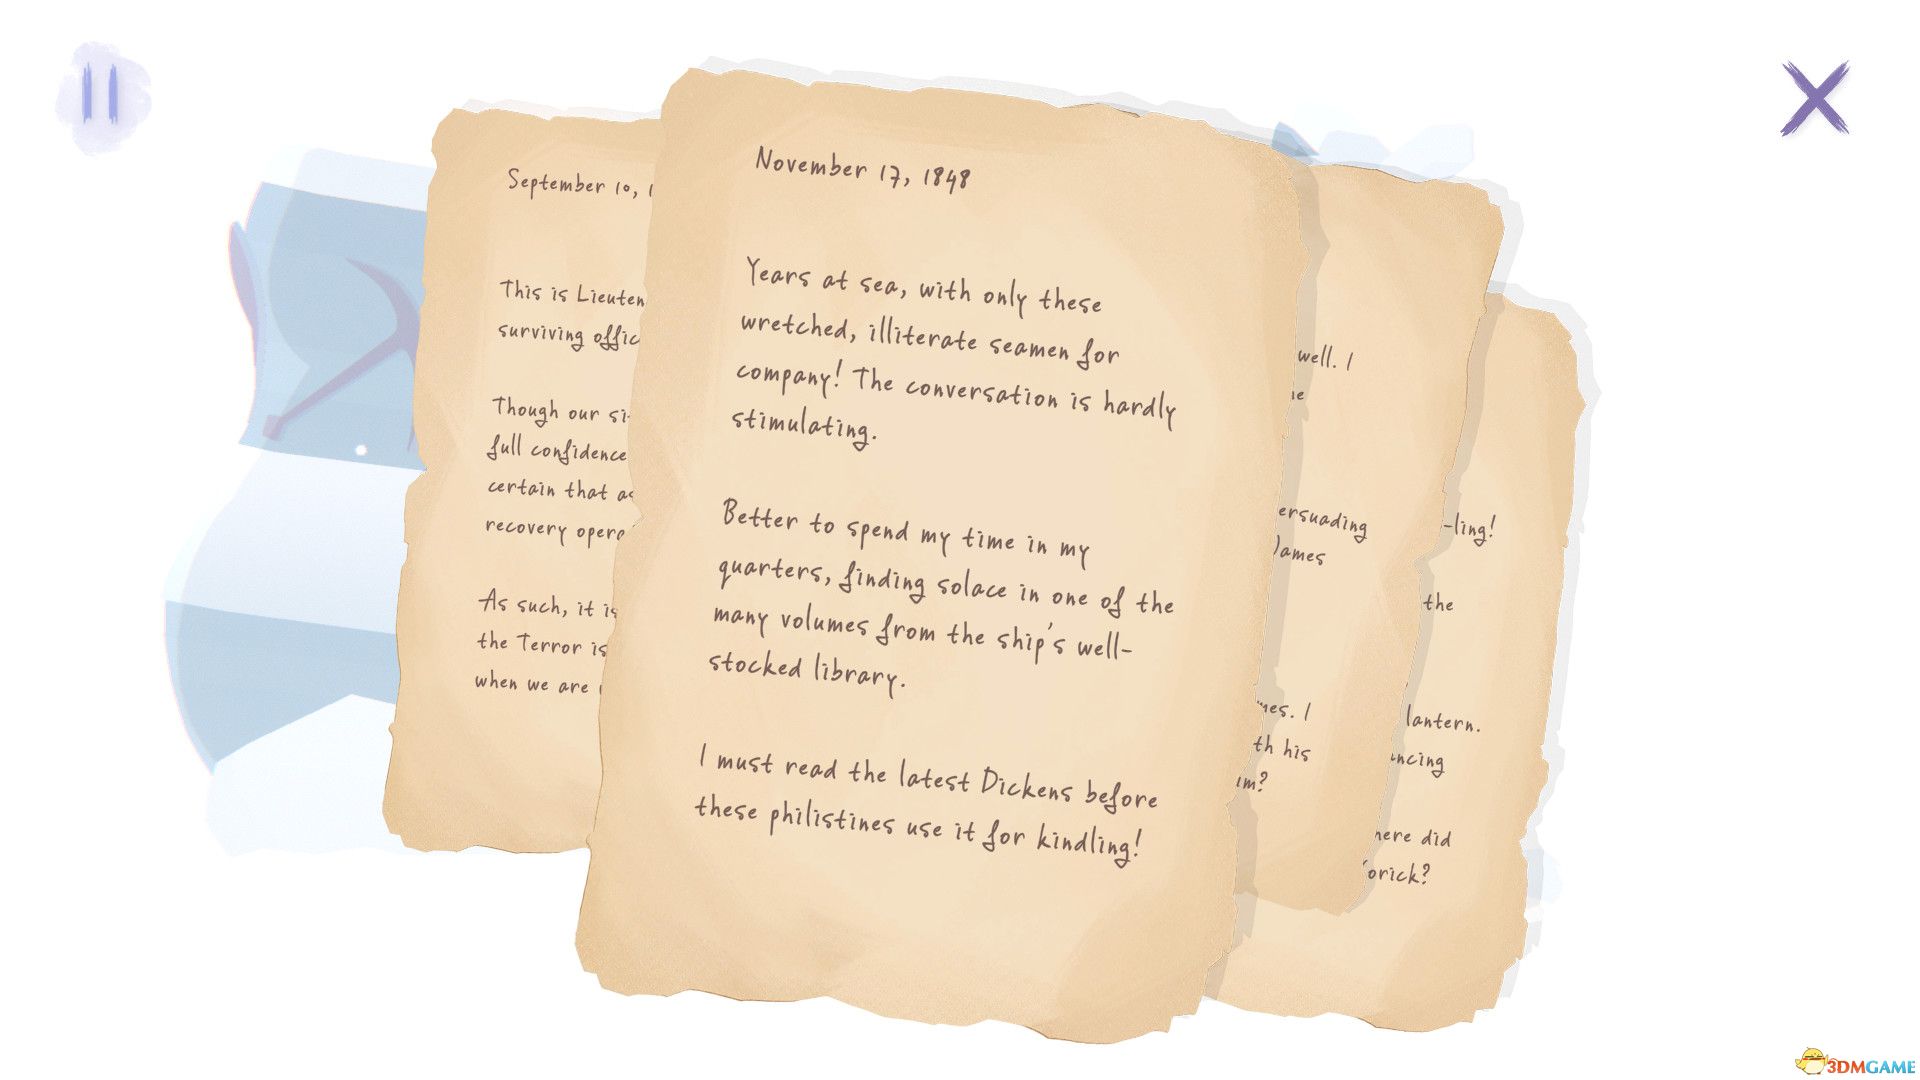 September 10,
This is
surviving
Though our
full confidence
certain that
recovery
As such, it is
the Terror is
when we are
November 17, 1848
Years at sea, with only these
wretched, illiterate seamen for
company! The conversation is hardly
stimulating.
Better to spend my time in my
quarters, finding solace in one of the
many volumes from the ship's well-
stocked library.
I must read the latest Dickens before
these philistines use it for kindling!
well. I
James
I
his
-ling!
the
lantern.
did
3DMGAME